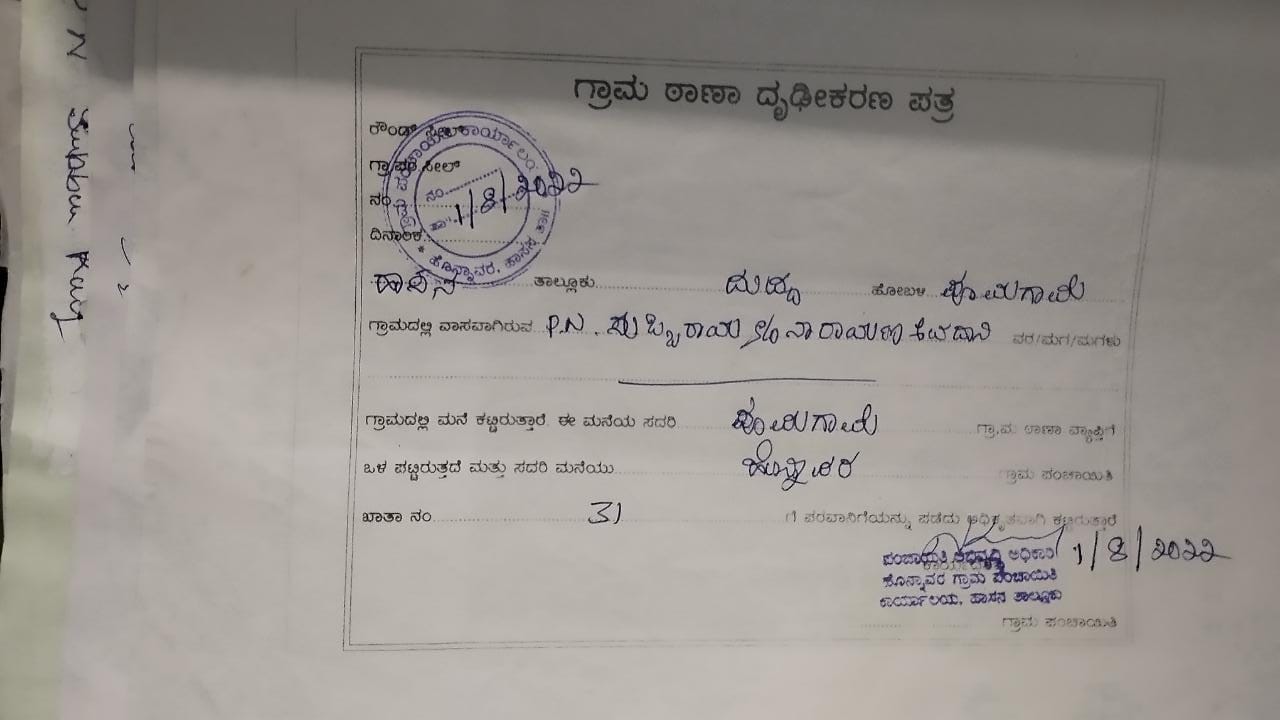 ಗ್ರಾಮ ಠಾಣಾ ದೃಢೀಕರಣ ಪತ್ರ
ರೌಂಡ್ ಸೀಲ್
ಗ್ರಾಮ ಸೀಲ್
ನಂ
ದಿನಾಂಕ
1/8/2022
ಹೊನ್ನಾವರ, ಹಾಸನ
ಹಾಸನ ತಾಲ್ಲೂಕು ದುದ್ದ ಹೋಬಳಿ
ಗ್ರಾಮದಲ್ಲಿ ವಾಸವಾಗಿರುವ P.N. ಸುಬ್ಬರಾಯ S/o ನಾರಾಯಣ ವರ/ಮಗ/ಮಗಳು
ಗ್ರಾಮದಲ್ಲಿ ಮನೆ ಕಟ್ಟಿರುತ್ತಾರೆ. ಈ ಮನೆಯ ಸದರಿ ಗ್ರಾಮ ಠಾಣಾ ವ್ಯಾಪ್ತಿಗೆ
ಒಳ ಪಟ್ಟಿರುತ್ತದೆ ಮತ್ತು ಸದರಿ ಮನೆಯು ಹೊನ್ನಾವರ ಗ್ರಾಮ ಪಂಚಾಯಿತಿ
ಖಾತಾ ನಂ 31 ಗೆ ಪರವಾನಿಗೆಯನ್ನು ಪಡೆದು ಅಧಿಕೃತವಾಗಿ ಕಟ್ಟಿರುತ್ತಾರೆ
ಪಂಚಾಯಿತಿ ಅಭಿವೃದ್ಧಿ ಅಧಿಕಾರಿ 1/8/2022
ಹೊನ್ನಾವರ ಗ್ರಾಮ ಪಂಚಾಯಿತಿ
ಕಾರ್ಯಾಲಯ, ಹಾಸನ ತಾಲ್ಲೂಕು
ಗ್ರಾಮ ಪಂಚಾಯಿತಿ